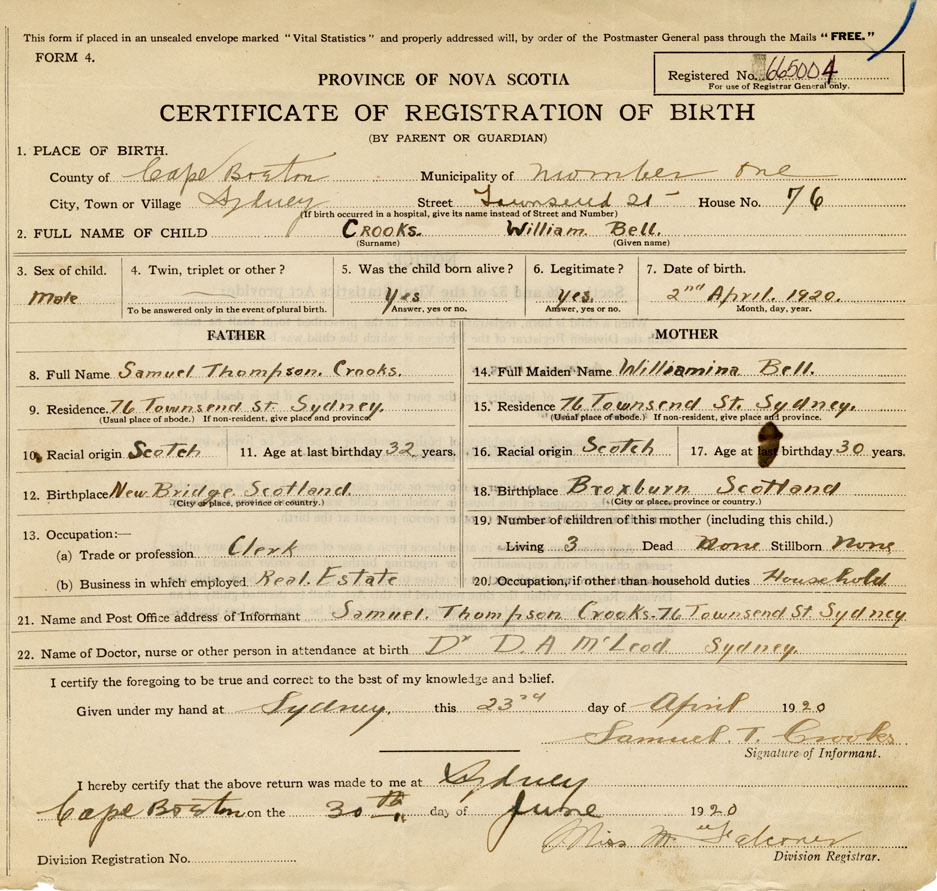 This form if placed in an unsealed envelope marked "Vital Statistics" and properly addressed will, by order of the Postmaster General pass through the Mails "FREE."
FORM 4.
Registered No. 665004
For use of Registrar General only.
PROVINCE OF NOVA SCOTIA
CERTIFICATE OF REGISTRATION OF BIRTH
(BY PARENT OR GUARDIAN)
1. PLACE OF BIRTH.
County of Cape Breton Municipality of Number One
City, Town or Village Sydney Street Townsend St House No. 76
(If birth occurred in a hospital, give its name instead of Street and Number)
2. FULL NAME OF CHILD CROOKS. William Bell.
(Surname) (Given name)
3. Sex of child. 4. Twin, triplet or other? 5. Was the child born alive? 6. Legitimate? 7. Date of birth.
Male — Yes Yes. 2nd April. 1920.
To be answered only in the event of plural birth. Answer, yes or no. Answer, yes or no. Month, day, year.
FATHER MOTHER
8. Full Name Samuel Thompson. Crooks. 14. Full Maiden Name Williamina Bell.
9. Residence. 76 Townsend St. Sydney. 15. Residence 76 Townsend St. Sydney.
(Usual place of abode.) If non-resident, give place and province. (Usual place of abode.) If non-resident, give place and province.
10. Racial origin Scotch 11. Age at last birthday 32 years. 16. Racial origin Scotch 17. Age at last birthday 30 years.
12. Birthplace New Bridge. Scotland. 18. Birthplace Broxburn Scotland
(City or place, province or country.) (City or place, province or country.)
13. Occupation:— 19. Number of children of this mother (including this child.)
(a) Trade or profession Clerk Living 3 Dead None Stillborn None
(b) Business in which employed Real. Estate 20. Occupation, if other than household duties Household
21. Name and Post Office address of Informant Samuel. Thompson Crooks-76 Townsend St. Sydney
22. Name of Doctor, nurse or other person in attendance at birth Dr D. A McLeod Sydney.
I certify the foregoing to be true and correct to the best of my knowledge and belief.
Given under my hand at Sydney. this 23rd day of April 1920
Samuel. T. Crooks
Signature of Informant.
I hereby certify that the above return was made to me at Sydney
Cape Breton on the 30th day of June 1920
Miss M Falconer
Division Registration No. Division Registrar.